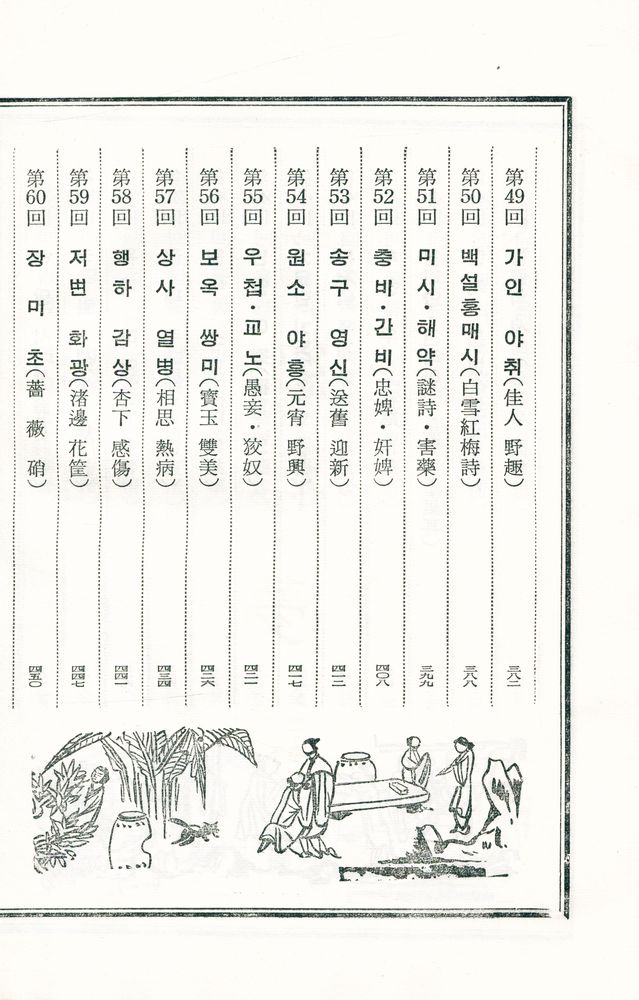 第49回 가인 야취(佳人 野趣) 三八二
第50回 백설홍매시(白雪紅梅詩) 三八八
第51回 미시·해약(謎詩·害藥) 三九九
第52回 충비·간비(忠婢·奸婢) 四〇八
第53回 송구 영신(送舊 迎新) 四一二
第54回 원소 야흥(元宵 野興) 四一七
第55回 우첩·교노(愚妾·狡奴) 四二一
第56回 보옥 쌍미(寶玉 雙美) 四二六
第57回 상사 열병(相思 熱病) 四三四
第58回 행하 감상(杏下 感傷) 四四一
第59回 저변 화광(渚邊 花筐) 四四七
第60回 장미초(薔薇硝) 四五〇